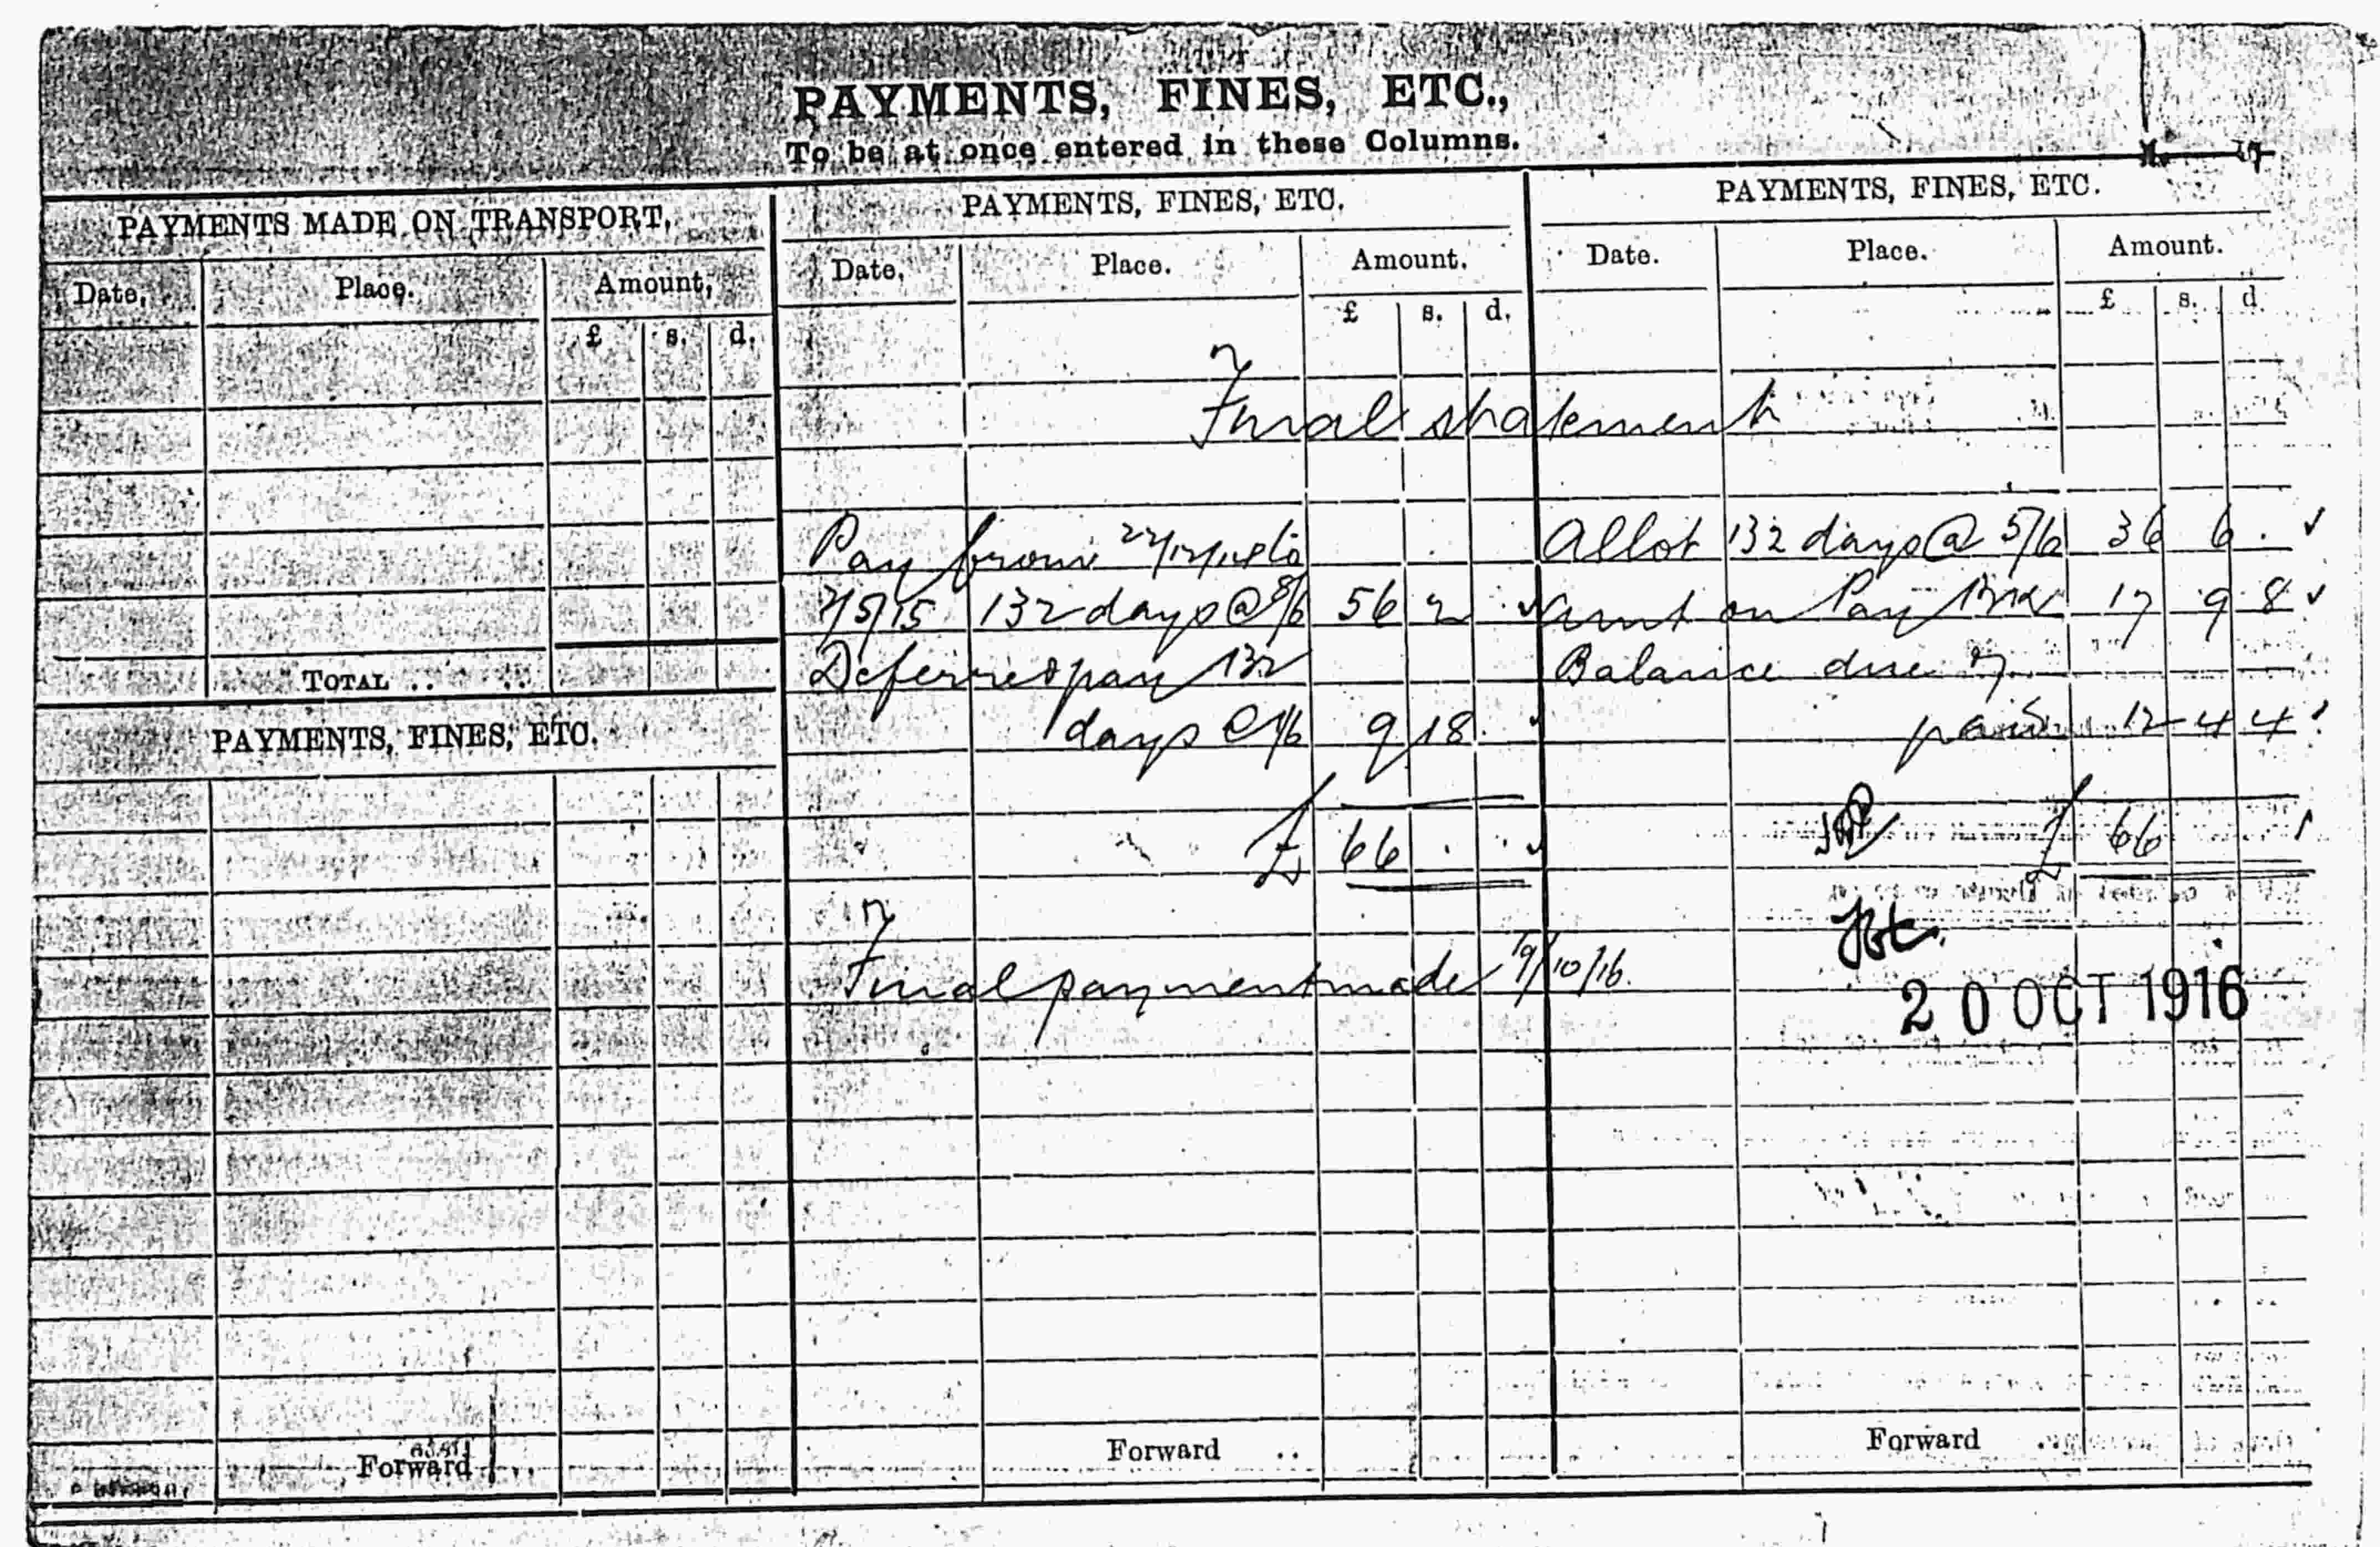 PAYMENTS, FINES, ETC.,
To be at once entered in these Columns.
PAYMENTS MADE ON TRANSPORT,
Date, Place. Amount,
£ s. d.
TOTAL .. ..
PAYMENTS, FINES, ETC.
Forward ..
PAYMENTS, FINES, ETC.
Date, Place. Amount.
£ s. d.
Final statement
Pay from 22/12/14 to
2/5/15 132 days @ 8/6 56 2 .
Deferred pay 132
days @ 1/6 9 18 .
£ 66 . .
Final payment made 19/10/16.
Forward ..
PAYMENTS, FINES, ETC.
Date. Place. Amount.
£ s. d.
Allot 132 days @ 5/6 36 6 .
Amt on Pay Bk 17 9 8
Balance due
paid 12 4 4
£ 66
20 OCT 1916
Forward